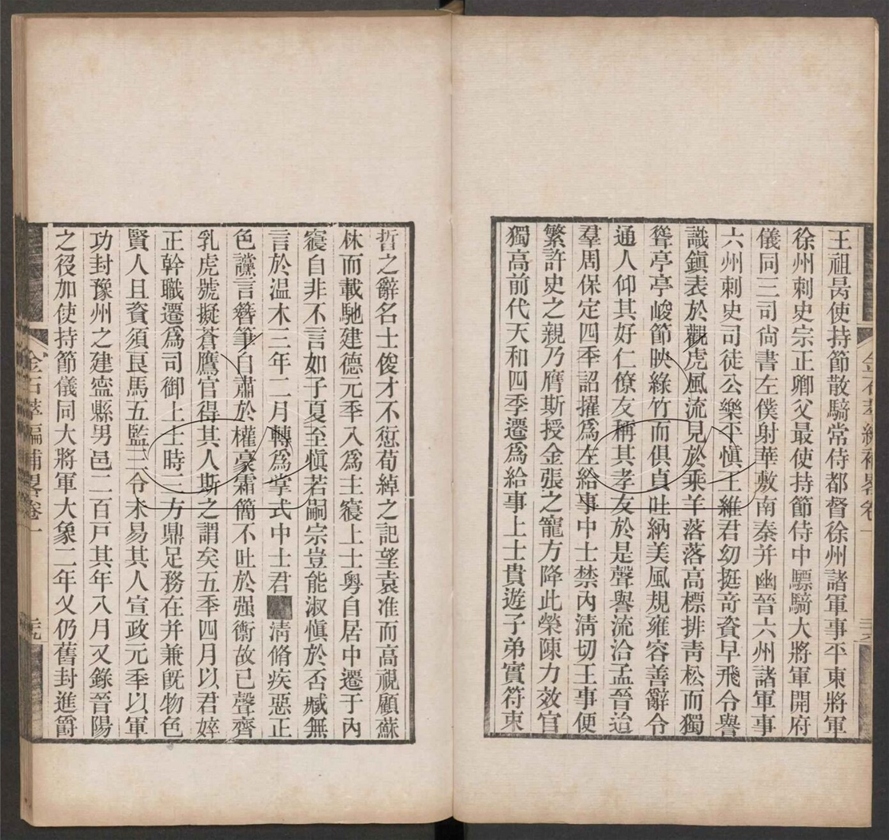 王祖昺使持節散騎常侍都督徐州諸軍事平東將軍
徐州刺史宗正卿父最使持節侍中驃騎大將軍開府
儀同三司尚書左僕射華敷南秦并幽晉六州諸軍事
六州刺史司徒公樂平愼王維君幼挺奇資早飛令譽
識鎮表於觀虎風流見於乘羊落落高標排靑松而獨
聳亭亭峻節映綠竹而俱貞吐納美風規雍容善辭令
通人仰其好仁僚友稱其孝友於是聲譽流洽孟晉迨
羣周保定四季詔擢爲左給事中士禁內淸切王事便
繁許史之親乃膺斯授金張之寵方降此榮陳力效官
獨高前代天和四季遷爲給事上士貴遊子弟實符束
晢之辭名士俊才不愆荀綽之記望袁准而高視顧蘇
林而載馳建德元季入爲主寢上士粵自居中遷于內
寢自非不言如子夏至愼若嗣宗豈能淑愼於否臧無
言於温木三年二月轉爲掌式中士君淸脩疾惡正
色讜言簪筆自肅於權豪霜簡不吐於强衞故已聲齊
乳虎號擬蒼鷹官得其人斯之謂矣五季四月以君婞
正幹職遷爲司御上士時三方鼎足務在并兼旣物色
賢人且資須良馬五監三令未易其人宣政元季以軍
功封豫州之建寍縣男邑二百戸其年八月又錄晉陽
之役加使持節儀同大將軍大象二年又仍舊封進爵
金石萃編補畧卷一